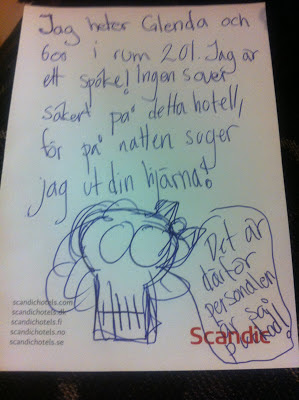 Jag heter Glenda och
bor i rum 201. Jag är
ett spöke! Ingen sover
säkert på detta hotell,
för på natten suger
jag ut din hjärna!
Det är
därför
personalen
är så
scandichotels.com
scandichotels.dk
scandichotels.fi
scandichotels.no
scandichotels.se
Scandic